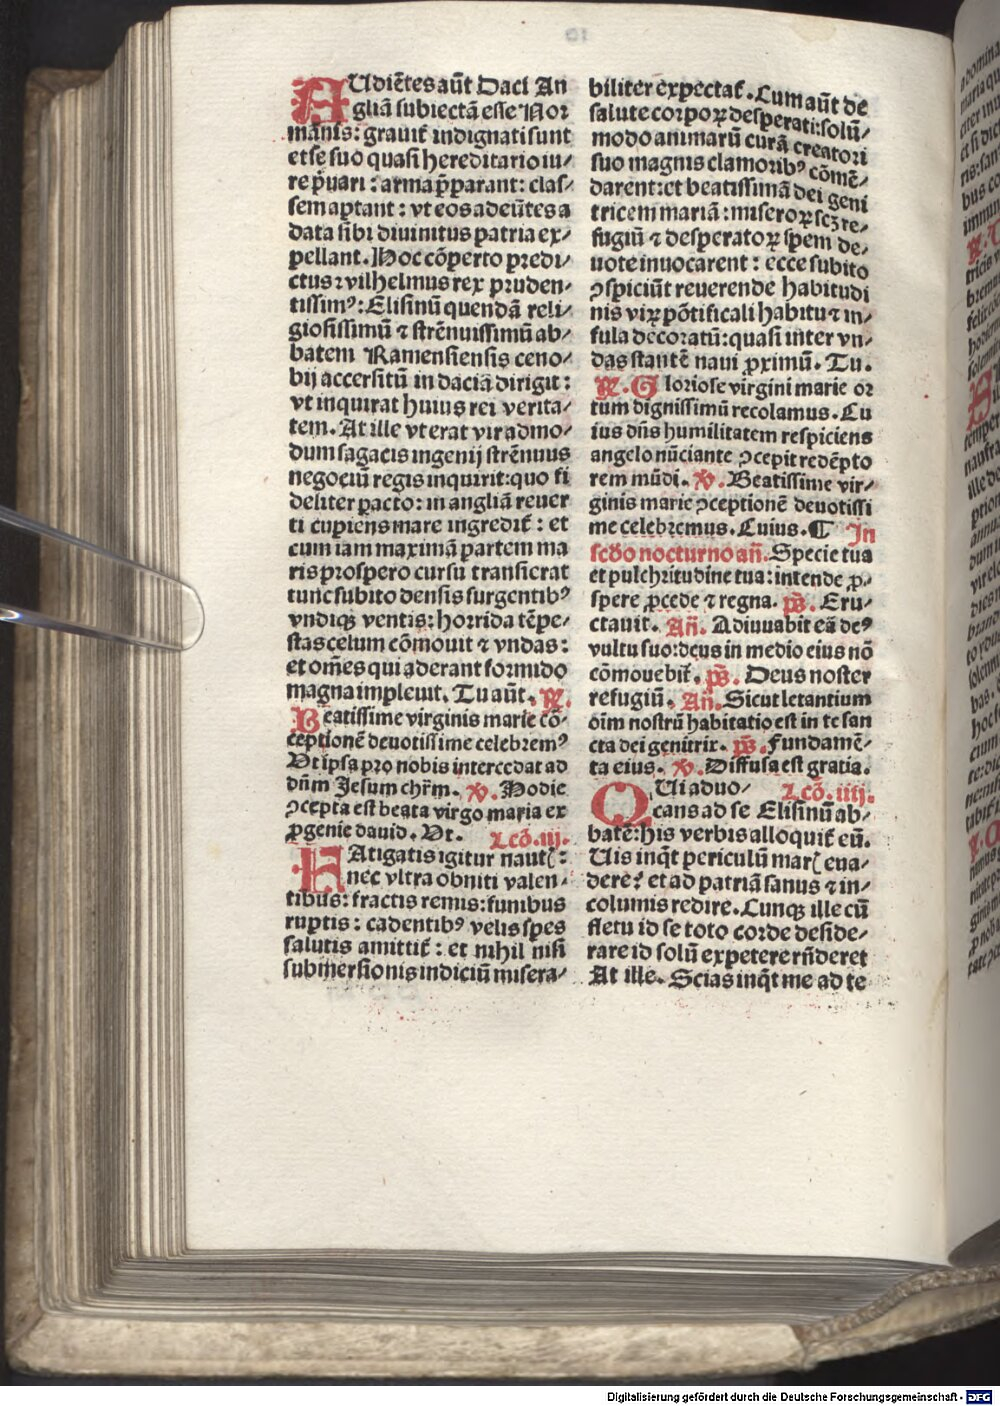 AUdiētes aūt Daci An
gliā subiectā esse Nor
manis: grauiť indignati sunt
et se suo quasi hereditario iu⸗
re p̄uari : arma p̄parant: clas⸗
sem aptant : vt eos adeūtes a
data sibi diuinitus patria ex⸗
pellant. Hoc cōperto predi⸗
ctus ꝛ vilhelmus rex pruden⸗
tissimꝰ: Elisinū quendā reli⸗
giosissimū ⁊ strēnuissimū ab⸗
batem Ramensiensis ceno⸗
bij accersitū in daciā dirigit :
vt inquirat huius rei verita⸗
tem. At ille vt erat vir admo⸗
dum sagacis ingenij strēnuus
negociū regis inquirit: quo fi
deliter pacto: in angliā reuer
ti cupiens mare ingrediť : et
cum iam maximā partem ma
ris prospero cursu transierat
tunc subito densis surgentibꝰ
vndiqꝫ ventis: horrida tēpe⸗
stas celum cōmouit ⁊ vndas :
et om̄es qui aderant formido
magna impleuit. Tu aūt. R.
Beatissime virginis marie cō⸗
ceptionē deuotissime celebremꝰ
Vt ipsa pro nobis intercedat ad
dn̄m Jesum chr̄m. V. Hodie
ꝯcepta est beata virgo maria ex
ꝓgenie dauid. Vt. Lcō. iij.
FAtigatis igitur nautꝭ :
nec vltra obniti valen⸗
tibus: fractis remis: funibus
ruptis : cadentibꝰ velis spes
salutis amittiť : et nihil nisi
submersionis indiciū misera⸗
biliter expectať. Cum aūt de
salute corpoꝝ desperati: solū⸗
modo animarū curā creatori
suo magnis clamoribꝰ cōmē⸗
darent: et beatissimā dei geni
tricem mariā : miseroꝝ scꝫ re⸗
fugiū ⁊ desperatoꝝ spem de⸗
uote inuocarent : ecce subito
ꝯspiciūt reuerende habitudi
nis viꝝ pōtificali habitu ⁊ in⸗
fula decoratū: quasi inter vn⸗
das stantē naui ꝓximū. Tu.
R. Gloriose virgini marie or
tum dignissimū recolamus. Cu
ius dn̄s humilitatem respiciens
angelo nūciante ꝯcepit redēpto
rem mūdi. V. Beatissime vir⸗
ginis marie ꝯceptionē deuotissi
me celebremus. Cuius. ¶ In
scd̄o nocturno an̄. Specie tua
et pulchritudine tua: intende ꝓ⸗
spere ꝓcede ⁊ regna. ps̄. Eru⸗
ctauit. An̄. Adiuuabit eā deꝰ
vultu suo: deus in medio eius nō
cōmouebiť. ps̄. Deus noster
refugiū. An̄. Sicut letantium
oīm nostrū habitatio est in te san
cta dei genitrix. ps̄. Fundamē⸗
ta eius. V. Diffusa est gratia.
QUi aduo⸗ Lcō. iiij.
cans ad se Elisinū ab⸗
batē: his verbis alloquiť eū.
Uis inqͥt periculū marꝭ eua⸗
dere? et ad patriā sanus ⁊ in⸗
columis redire. Cunqꝫ ille cū
fletu id se toto corde deside⸗
rare id solū expetere rn̄deret
At ille. Scias inqͥt me ad te
Digitalisierung gefördert durch die Deutsche Forschungsgemeinschaft - DFG